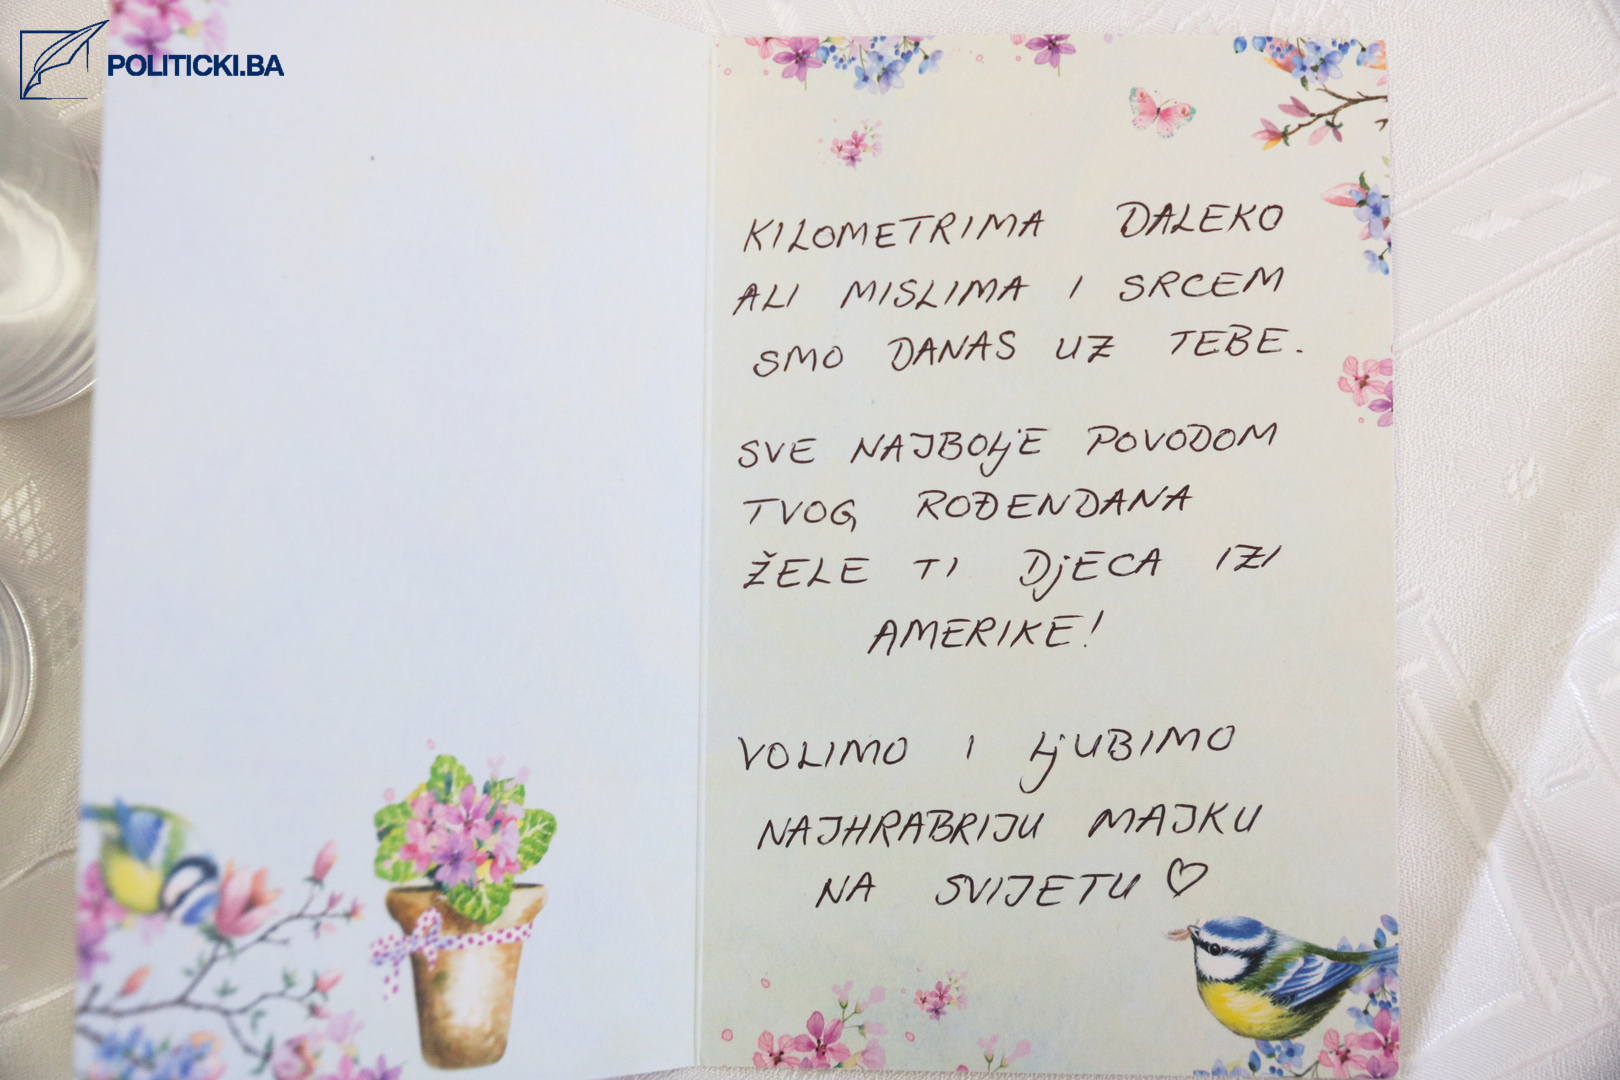 POLITICKI.BA
KILOMETRIMA DALEKO
ALI MISLIMA I SRCEM
SMO DANAS UZ TEBE.
SVE NAJBOLJE POVODOM
TVOG ROĐENDANA
ŽELE TI DJECA IZI
AMERIKE!
VOLIMO I LJUBIMO
NAJHRABRIJU MAJKU
NA SVIJETU ♡